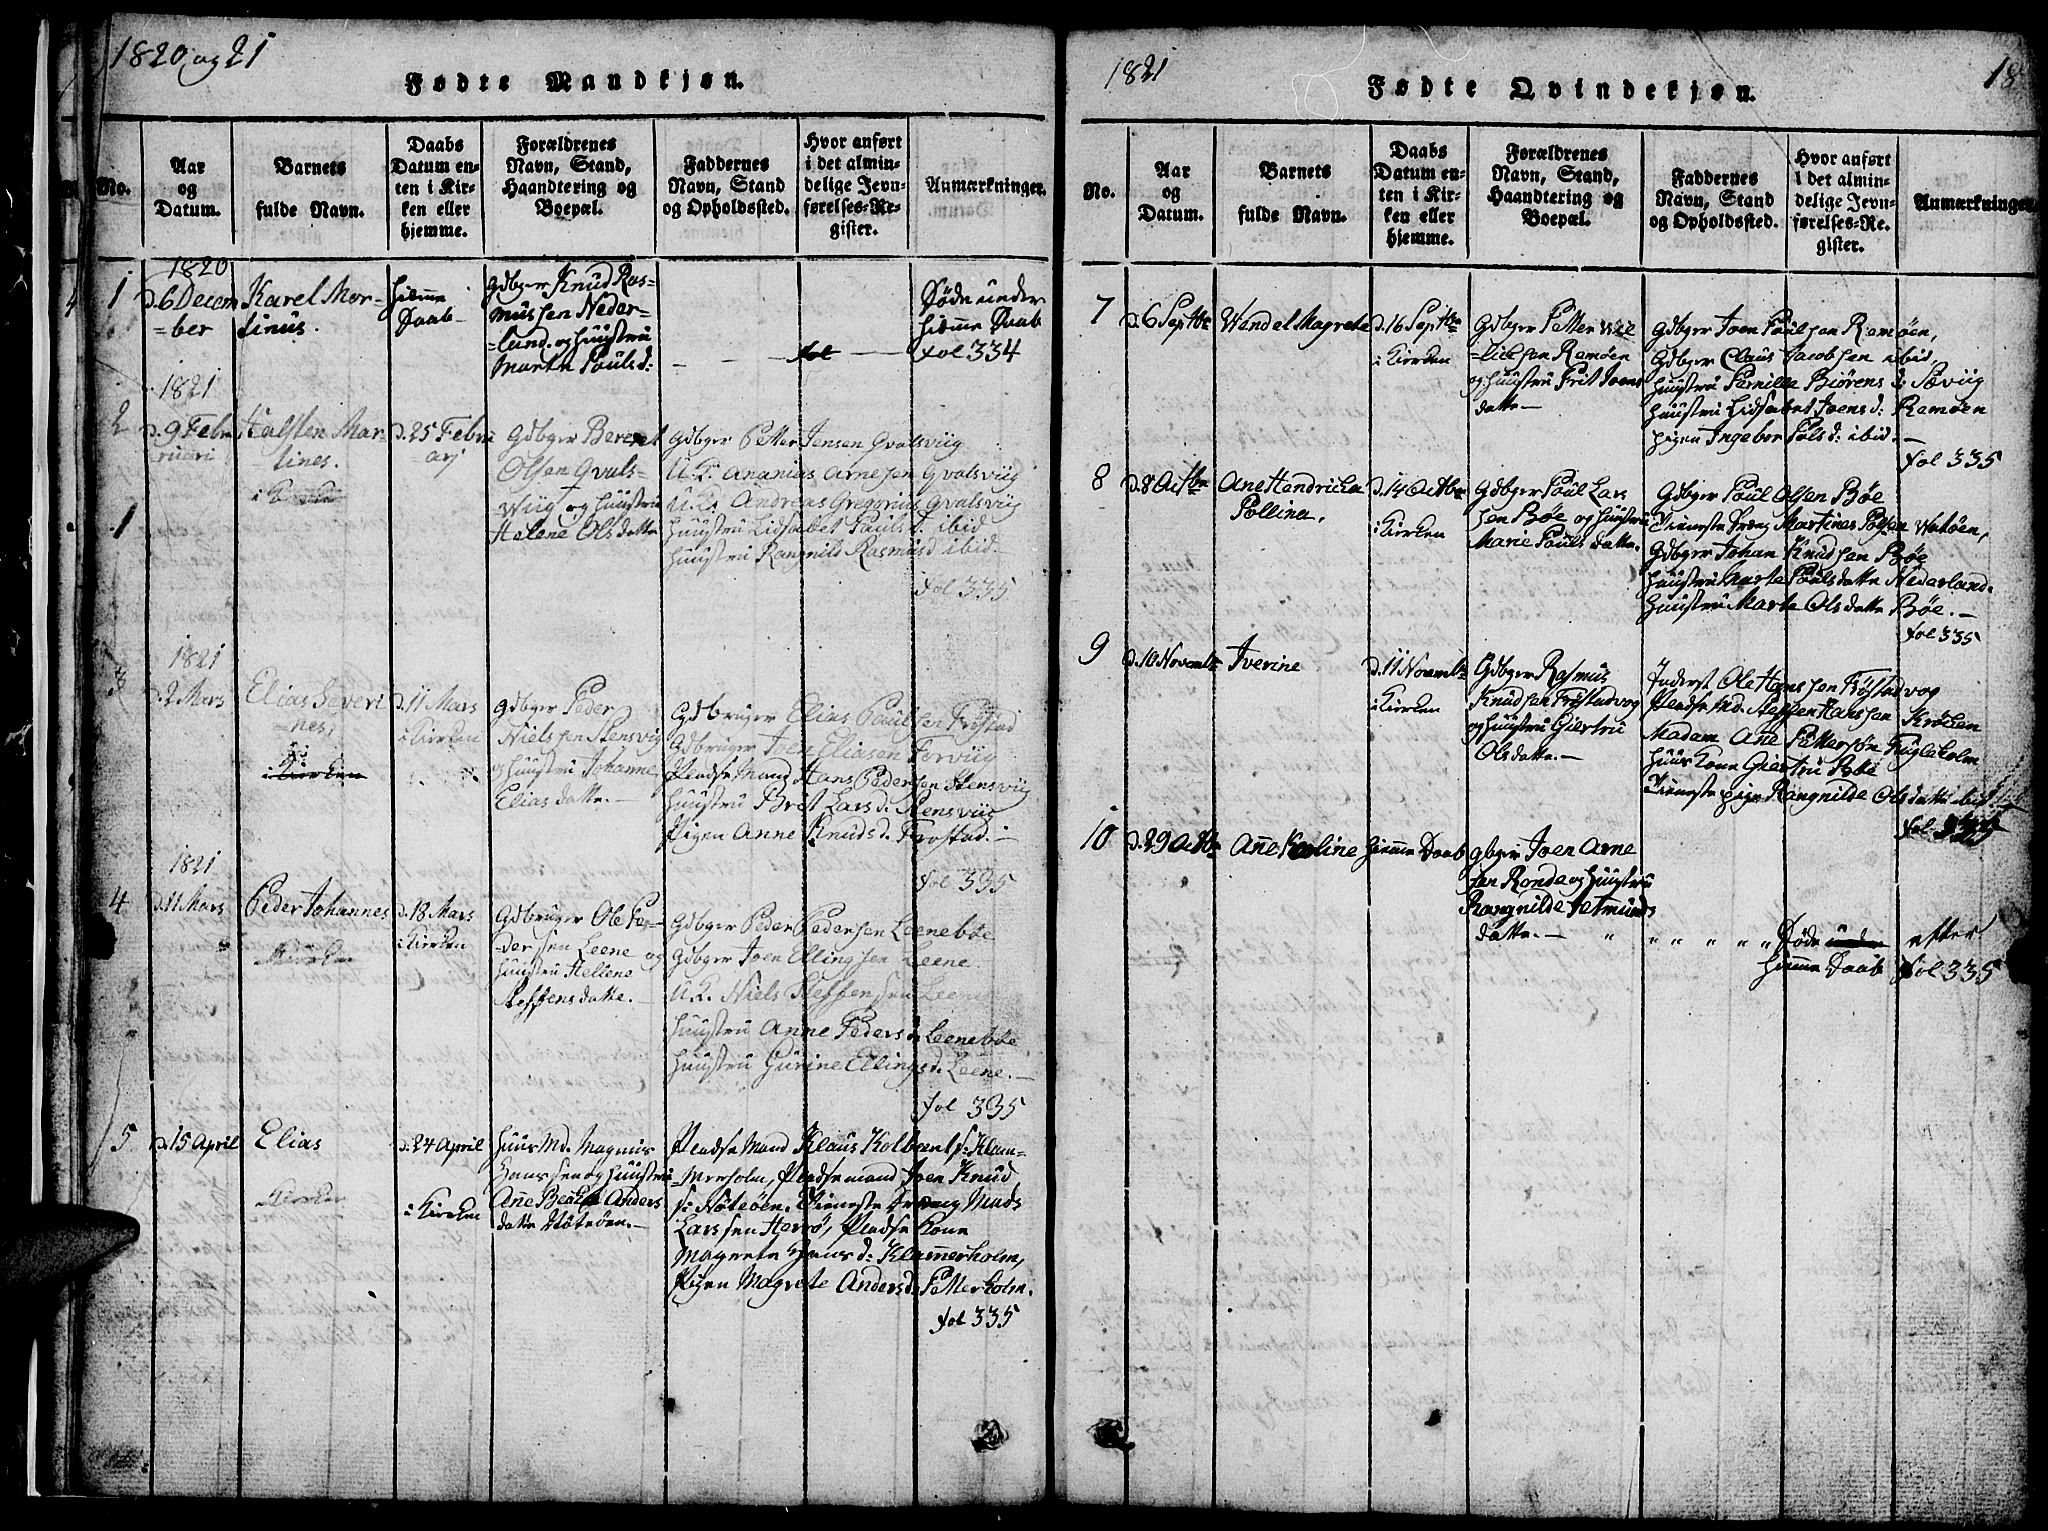 1820 og 21
Fødte Mandkjøn.
No.
Aar
og
Datum.
Barnets
fulde Navn.
Daabs
Datum en-
ten i Kir-
ken eller
hjemme.
Forældrenes
Navn, Stand,
Haandtering og
Boepæl.
Faddernes
Navn, Stand
og Opholdssted.
Hvor anført
i det almin-
delige Jevn-
førelses-Re-
gister.
Anmærkninger.
1
1820
d. 6 Decem
-ber
Karel Mar-
tinus.
hiemme
Daab
Gdbger Knud Ras-
mussen Neder-
-land. og Huustru
Marte Pouls d:
Døde under
hiemme Daab
fol 334
2
1821
d. 9 Febr
ruari
Halsten Mar-
tines.
d. 25 Febru
arj
Gdbger Berent
Olsen Qvals-
wiig og Huustru
Helene Olsdatte
Gdbger Petter Jensen Qvalsviig
U.K. Ananias Arnesen Qvalsviig
U.K. Andreas Gregorius Qvalsviig
Huustru Lidsabet Pouls d. ibid.
Huustru Rangnild Rasmus d ibid.
fol 335
1
3
1821
d. 2 Mars
Elias Severi
nes,
i Kirken
d. 11 Mars
i Kirken
Gdbger Peder
Nielssen Stensvig
og Huustru Johanne
Eliasdatte.-
Gdbruger Elias Poulsen Frøstad
Gdbruger Joen Eliasen Forviig
Pladsemand Hans Pedersen Stensviig
Huustru Brit Lars d. Stensviig
Pigen Anne Knuds d. Frostad.-
fol 335
4
1821
d. 11 Mars
Peder Johannes
Kirken
d. 18 Mars
i Kirken
Gdbruger Ole Pe-
dersen Leene og
Huustru Hellene
Steffensdatte.-
Gdbger Peder Pedersen Leenebøe
Gdbger Joen Ellingsen Leene
U.K. Niels Steffensen Leene
Huustru Anne Peders d. Leenebøe
Huustru Gurine Ellings d. Leene.-
fol 335
5
d. 15 April
Elias
Kirken
d. 24 April
i Kirken
Huus Md. Magnus
Hanssen og Huustru
Anne Beate Anders
datte Nøtøen.-
Pladse Mand Klaus Kolbent s: Klam-
-merholm, Pladsemand Joen Knud
s: Nøtøen. Tieneste Dreng Mads
Larssen Herrø, Pladse Kone
Magrete Hans d: Klamerholm,
Pigen Magrete Anders d. Petterholm.
fol 335
1821
Fødte Qvindekjøn.
18
No.
Aar
og
Datum.
Barnets
fulde Navn.
Daabs
Datum en-
ten i Kir-
ken eller
hjemme.
Forældrenes
Navn, Stand,
Haandtering og
Boepæl.
Faddernes
Navn, Stand
og Opholdssted.
Hvor anført
i det almin-
delige Jevn-
førelses-Re-
gister.
Anmærkninger
7
d. 6 Septbr
Wendel Magrete
d. 16 Septbr
i Kirken
Gdbger Petter Wil
-licksen Ramøen
og Huustru Brit Joens
datte.-
Gdbger Joen Poulsen Ramøen,
Gdbger Claus Jacobsen ibid,
Huustru Pernille Biørens d: Sæviig
Huustru Lidsabet Joens d: Ramøen
Pigen Ingebor Pols d: ibid.-
fol 335
8
d. 8 Octbr
Ane Hendricka
Pollina,
d. 14 Octbr
i Kirken
Gdbger Poul Lars
sen Bøe og Huustru
Marie Pouls datte.
Gdbger Poul Olsen Bøe
Tieneste Dreng Martines Polsen Watøen,
Gdbger Johan Knudsen Bøe
Huustru Marte Polsdatte Nederland.
Huustru Marte Olsdatte Bøe.-
fol 335
9
d. 10 Novembr
Iverine
d. 11 Novembr
i Kirken
Gdbger Rasmus
Knudsen Frøstadvog
og Huustru Giertru
Olsdatte.-
Inderst Ole Hanssen Frøstadvog
Pladse Md. Steffen Hanssen Krøcken
Madam Ane Pettersøn Fugleholm
Huus Kone Giertru
Tieneste pige Rangnilde Olsdatte ibid.
fol 335
10
d. 29 Octbr
Ane Karline
hiemme Daab
Gbger Joen Arne
sen Rønda og Huustru
Rangnilde Asmunds
datte.-
Døde under efter
hiemme Daab fol 335